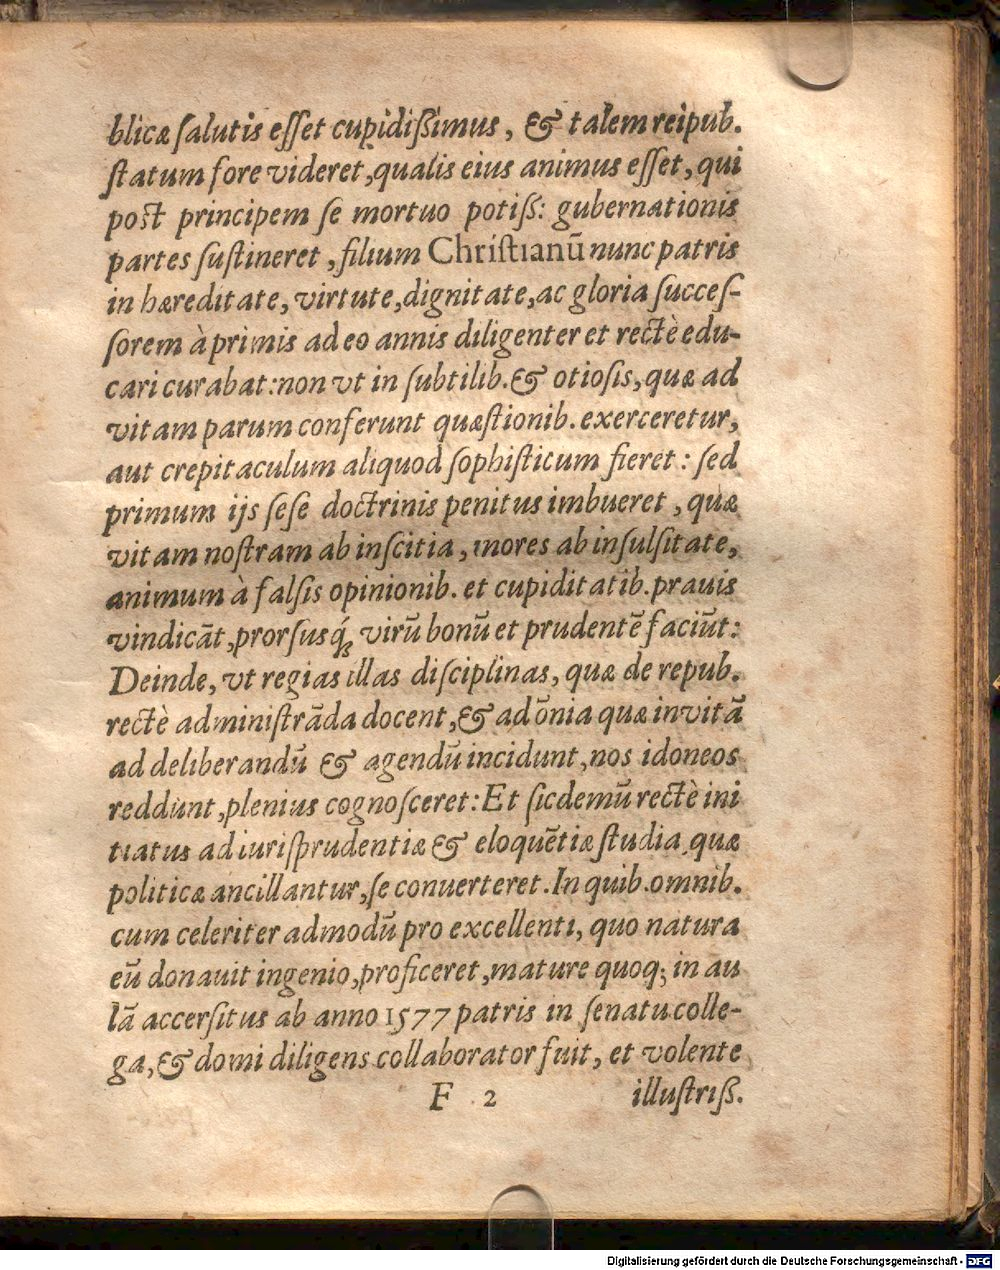 blicæ salutis esset cupidißimus, & talem reipub.
statum fore videret, qualis eius animus esset, qui
post principem se mortuo potiß: gubernationis
partes sustineret, filium Christianū nunc patris
in hæreditate, virtute, dignitate, ac gloria succes-
sorem à primis adeo annis diligenter et rectè edu-
cari curabat: non vt in subtilib. & otiosis, quæ ad
vitam parum conferunt quæstionib. exerceretur,
aut crepitaculum aliquod sophisticum fieret: sed
primum ijs sese doctrinis penitus imbueret, quæ
vitam nostram ab inscitia, mores ab insulsitate,
animum à falsis opinionib. et cupiditatib. prauis
vindicāt, prorsusq́; virū bonū et prudentē faciūt:
Deinde, vt regias illas disciplinas, quæ de repub.
rectè administrāda docent, & ad ōnia quæ in vitā
ad deliberandū & agendū incidunt, nos idoneos
reddunt, plenius cognosceret: Et sic demū rectè ini
tiatus ad iurisprudentiæ & eloquētiæ studia, quæ
politicæ ancillantur, se conuerteret. In quib. omnib.
cum celeriter admodū pro excellenti, quo natura
eū donauit ingenio, proficeret, mature quoq; in au
lā accersitus ab anno 1577 patris in senatu colle-
ga, & domi diligens collaborator fuit, et volente
F 2 illustriß.
Digitalisierung gefördert durch die Deutsche Forschungsgemeinschaft - DFG